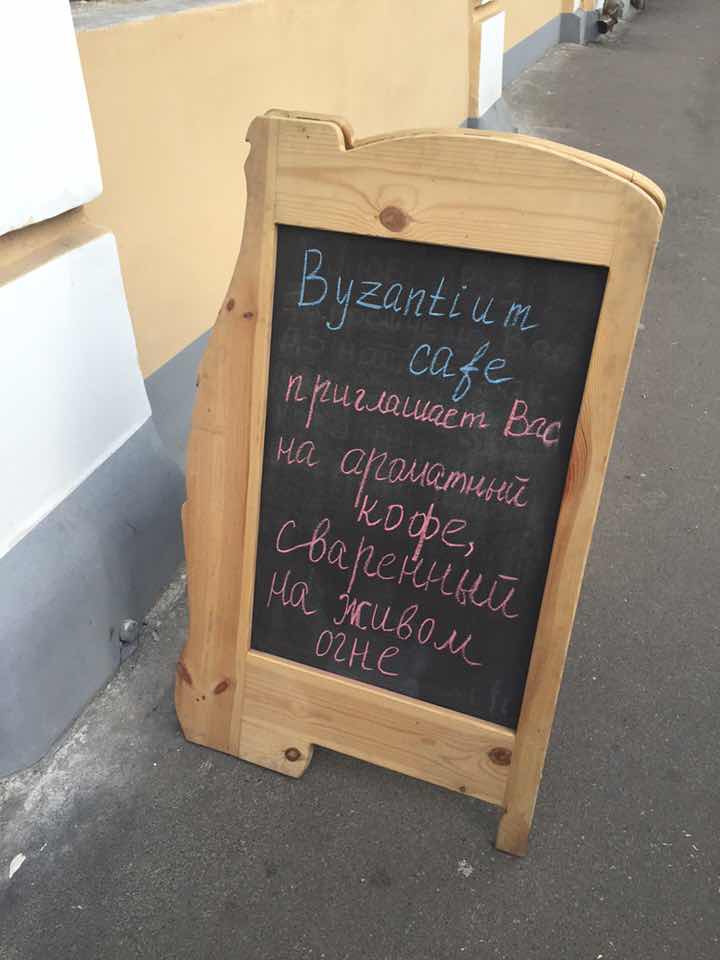 Byzantium
cafe
приглашает Вас
на ароматный
кофе,
сваренный
на живом
огне